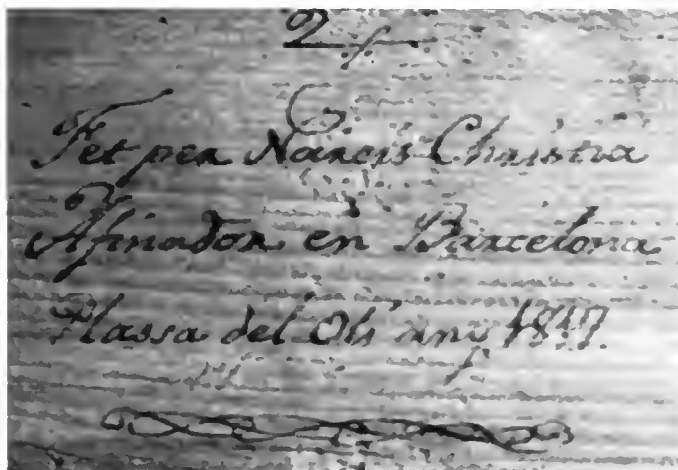 2
Fet per Narcis Christia
Afinador en Barcelona
Plassa del Oli any 18